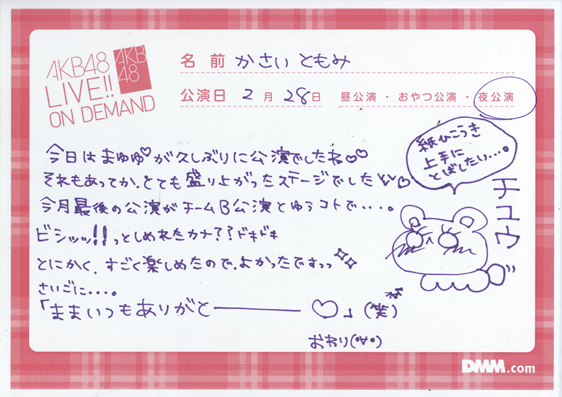 AKB48
LIVE!!
ON DEMAND
AKB
48
名前 かさい ともみ
公演日 2月28日 昼公演・おやつ公演・夜公演
今日は まゆゆ♡が久しぶりに公演でしたね♡♡
それもあってか、とても盛り上がったステージでした
今月最後の公演がチームB公演とゆうコトで・・・。
ビシッッ!!っとしめれたカナ??ドキドキ
とにかく、すごく楽しめたので、よかったですっっ
さいごに・・・。
「ままいつもありがと―――――♡」(笑)
おわり(°∀°)
紙ひこうき
上手に
とばしたい・・・。
チュウ
DMM.com